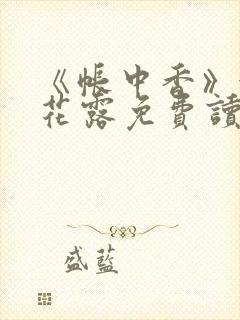 《帳中香》
花露免費讀
盛藍